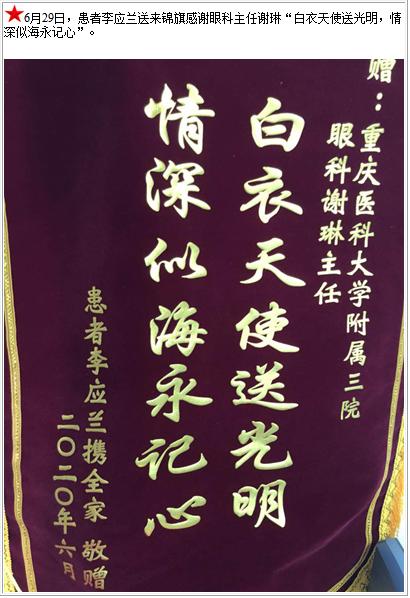 ★6月29日，患者李应兰送来锦旗感谢眼科主任谢琳“白衣天使送光明，情
深似海永记心”。
赠：重庆医科大学附属三院
眼科谢琳主任
白衣天使送光明
情深似海永记心
患者李应兰携全家 敬赠
二〇二〇年六月